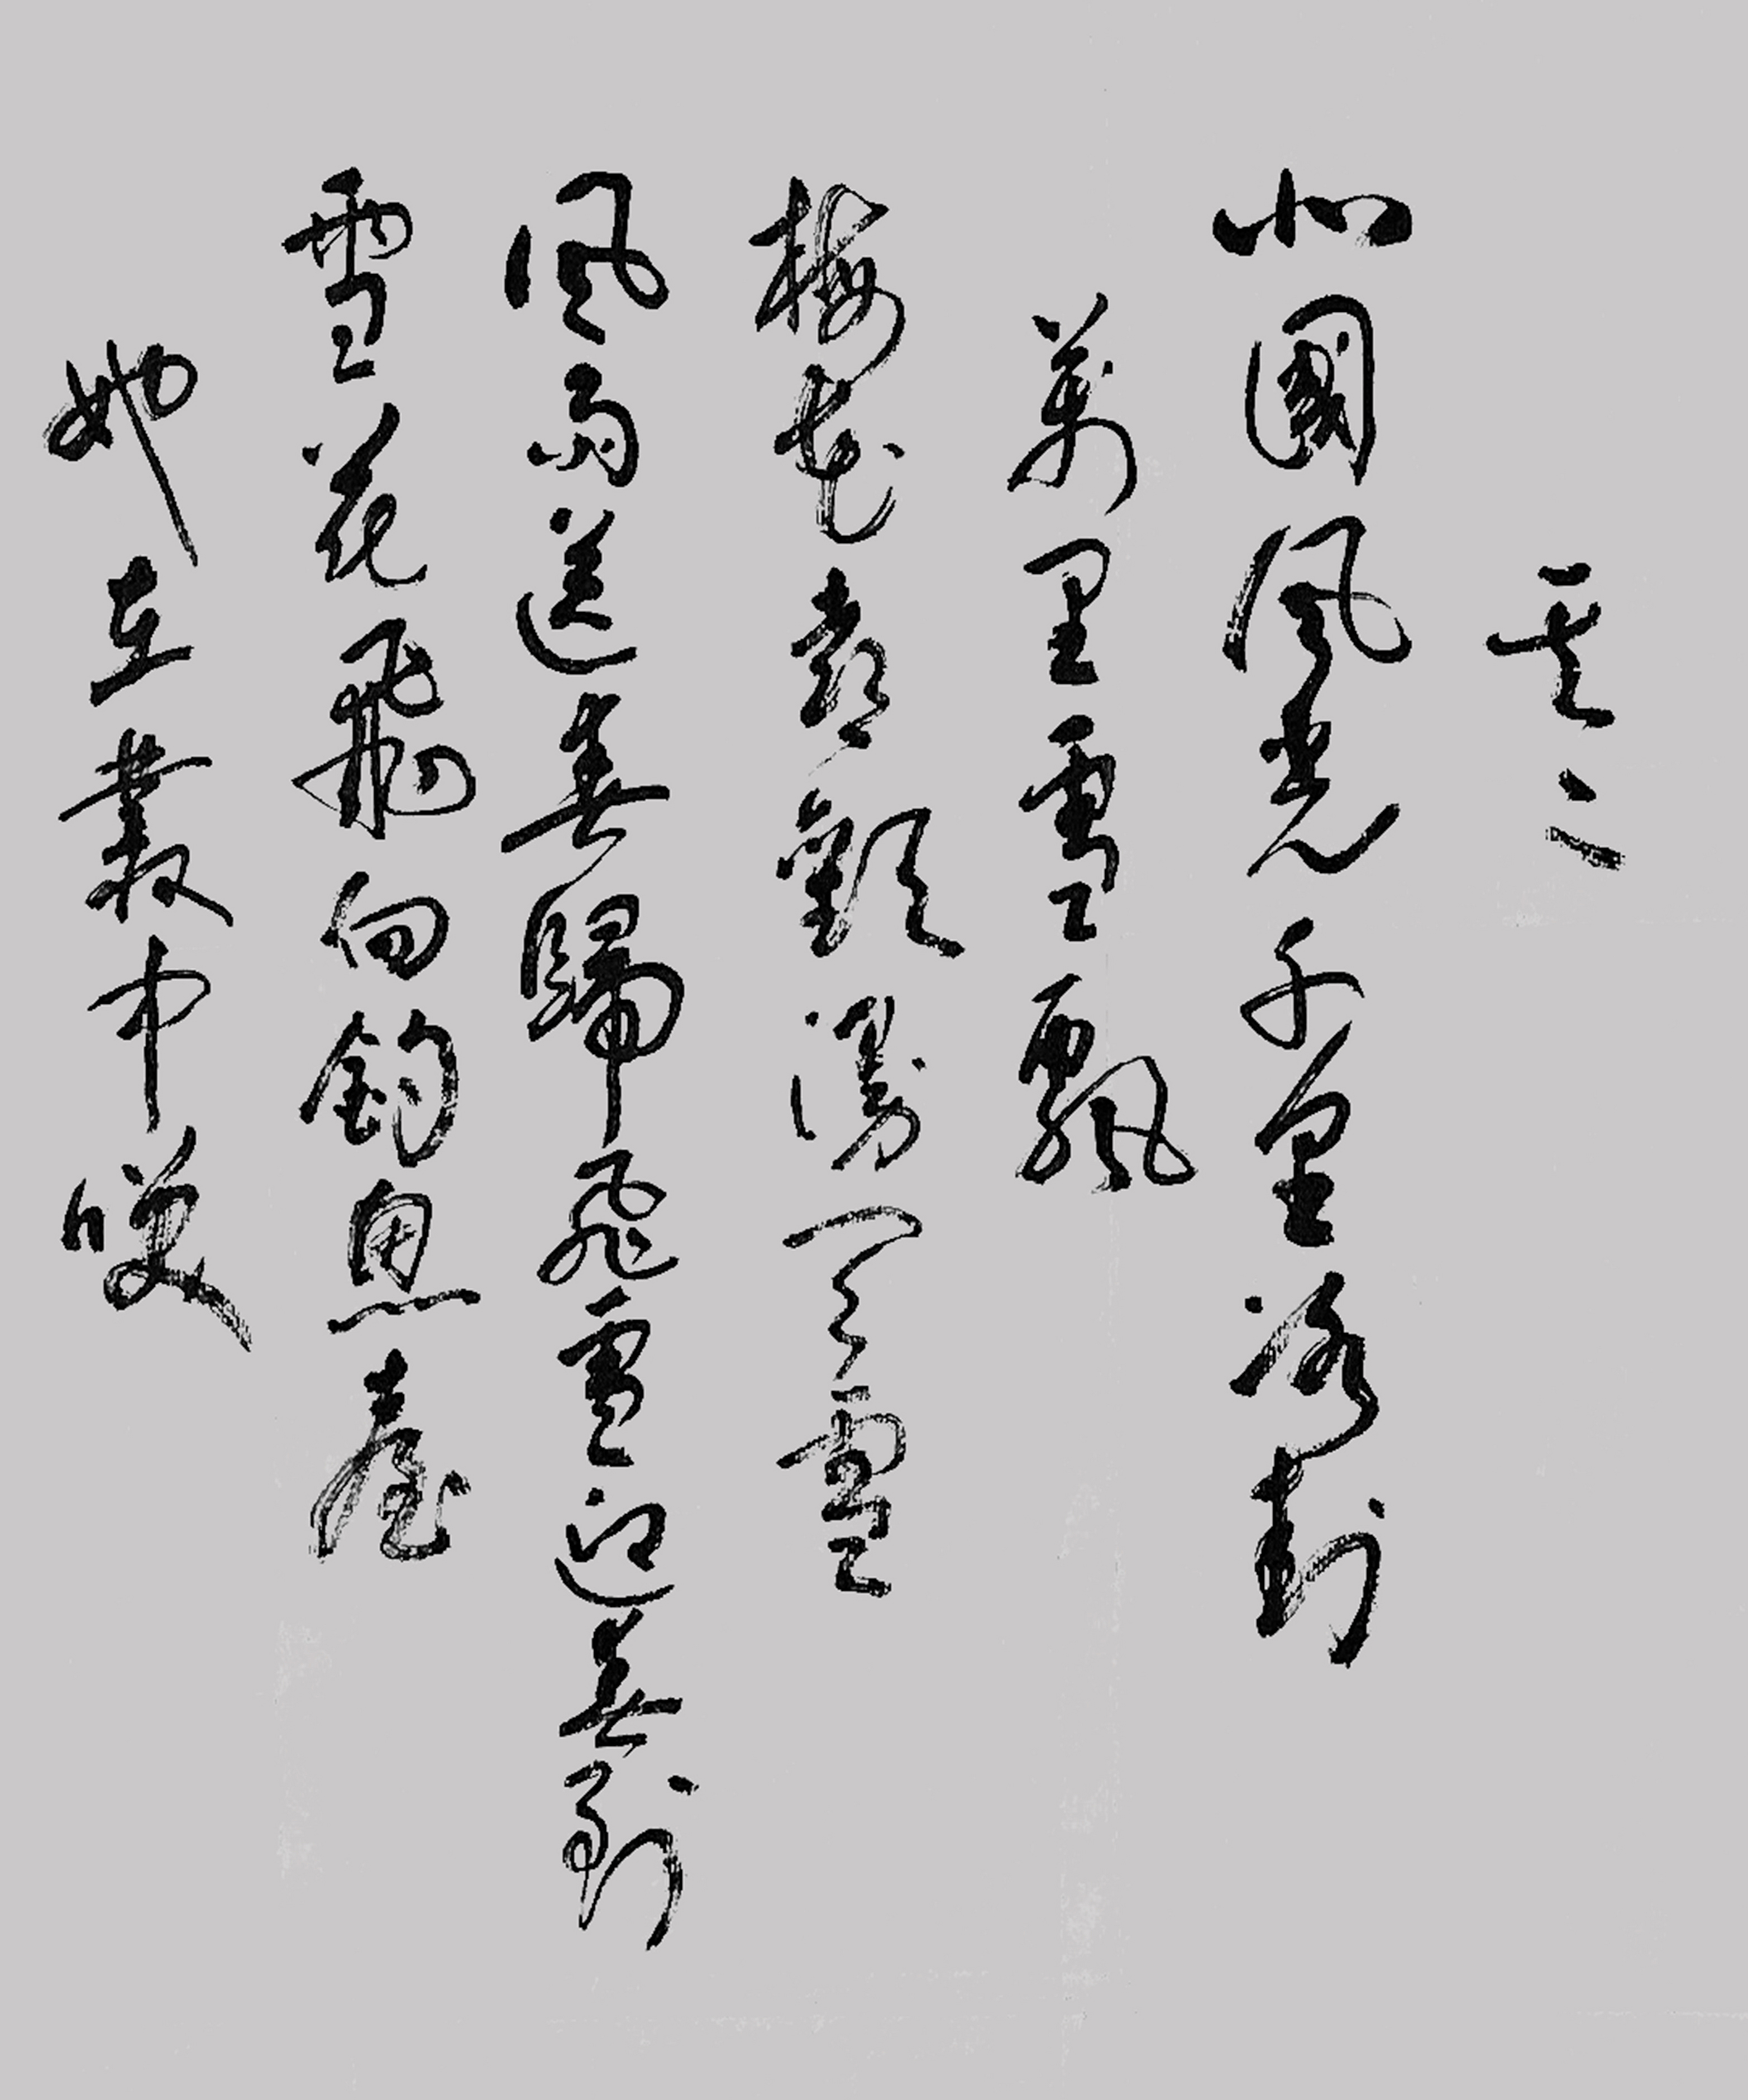 其二
北國風光千里冰封
萬里雪飄
梅花喜歡漫天雪
風雨送春歸飛雪迎春到
雪花飛向釣魚臺
她在叢中笑